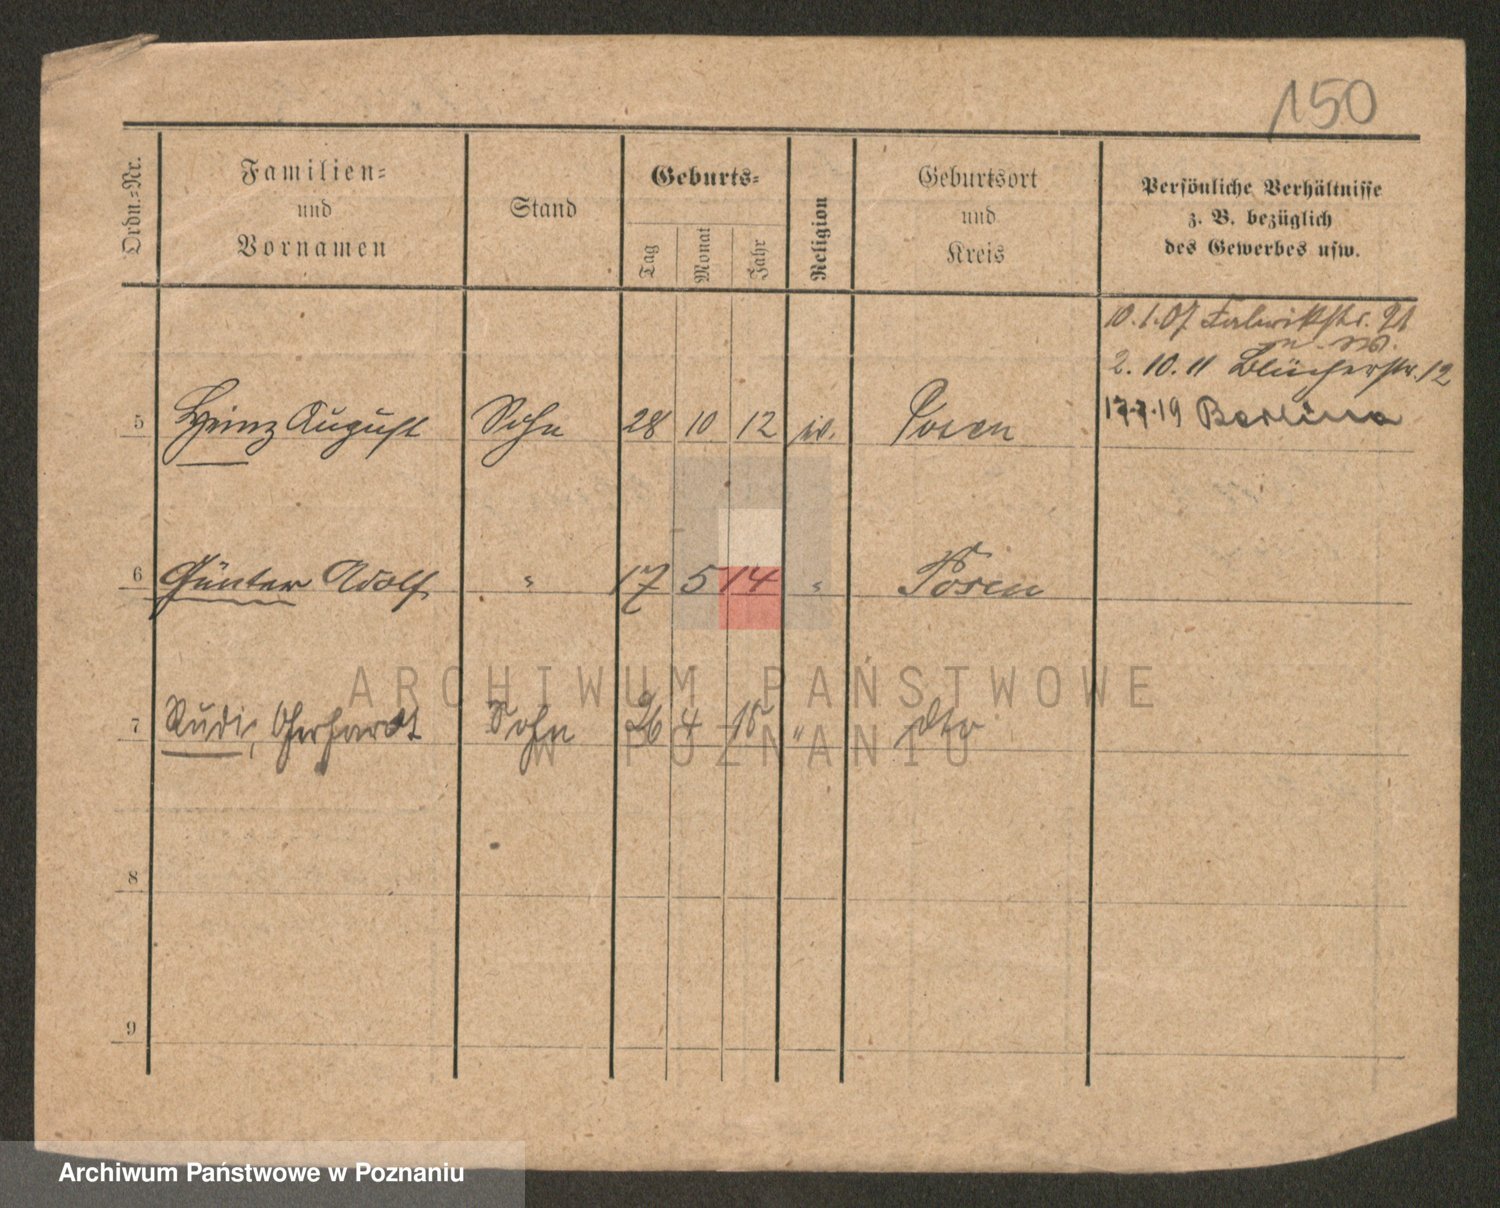 150
Ordn.-Nr.
Familien-
und
Vornamen
Stand
Geburts-
Tag
Monat
Jahr
Religion
Geburtsort
und
Kreis
Persönliche Verhältnisse
z. B. bezüglich
des Gewerbes usw.
10.1.07 Fabrikstr. 21
2.10.11 Blücherstr. 12
5 Heinz August Sohn 28 10 12 Posen 19 Berlin
6 Günter Adolf " 17 5 14 " Posen
ARCHIWUM PAŃSTWOWE
7 Rudi, Gerhardt Sohn 26 4 18 " dto
W POZNANIU
8
9
Archiwum Państwowe w Poznaniu